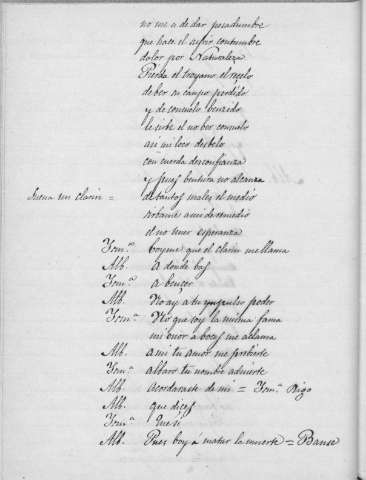 no me a de dar pesadumbre
que hace el sufrir costumbre
dolor por Naturaleza
Pierda el troyano el recelo
de ber su campo perdido
y de consuelo benzido
le sirbe el no ber consuelo
asi mi loco desbelo
con cuerda desconfianza
y pues bentura no alcanza
Suena un clarin = de tantos males el medio
sirbame a mi de remedio
el no tener esperanza
Tom.ᵃ boyme que el clarin me llama
Alb. A donde bas
Tom.ᵃ A bençer
Alb. No ay a tu poder
Tom.ᵃ No que soy la misma fama
mi onor a boces me allama
Alb. a mi tu amor me
Tom.ᵃ albaro tu nombre adbierte
Alb. acordaraste de mi = Tom.ᵃ Digo
Alb. que dices
Tom.ᵃ Que si
Alb. Pues boy á matar la muerte = Banse